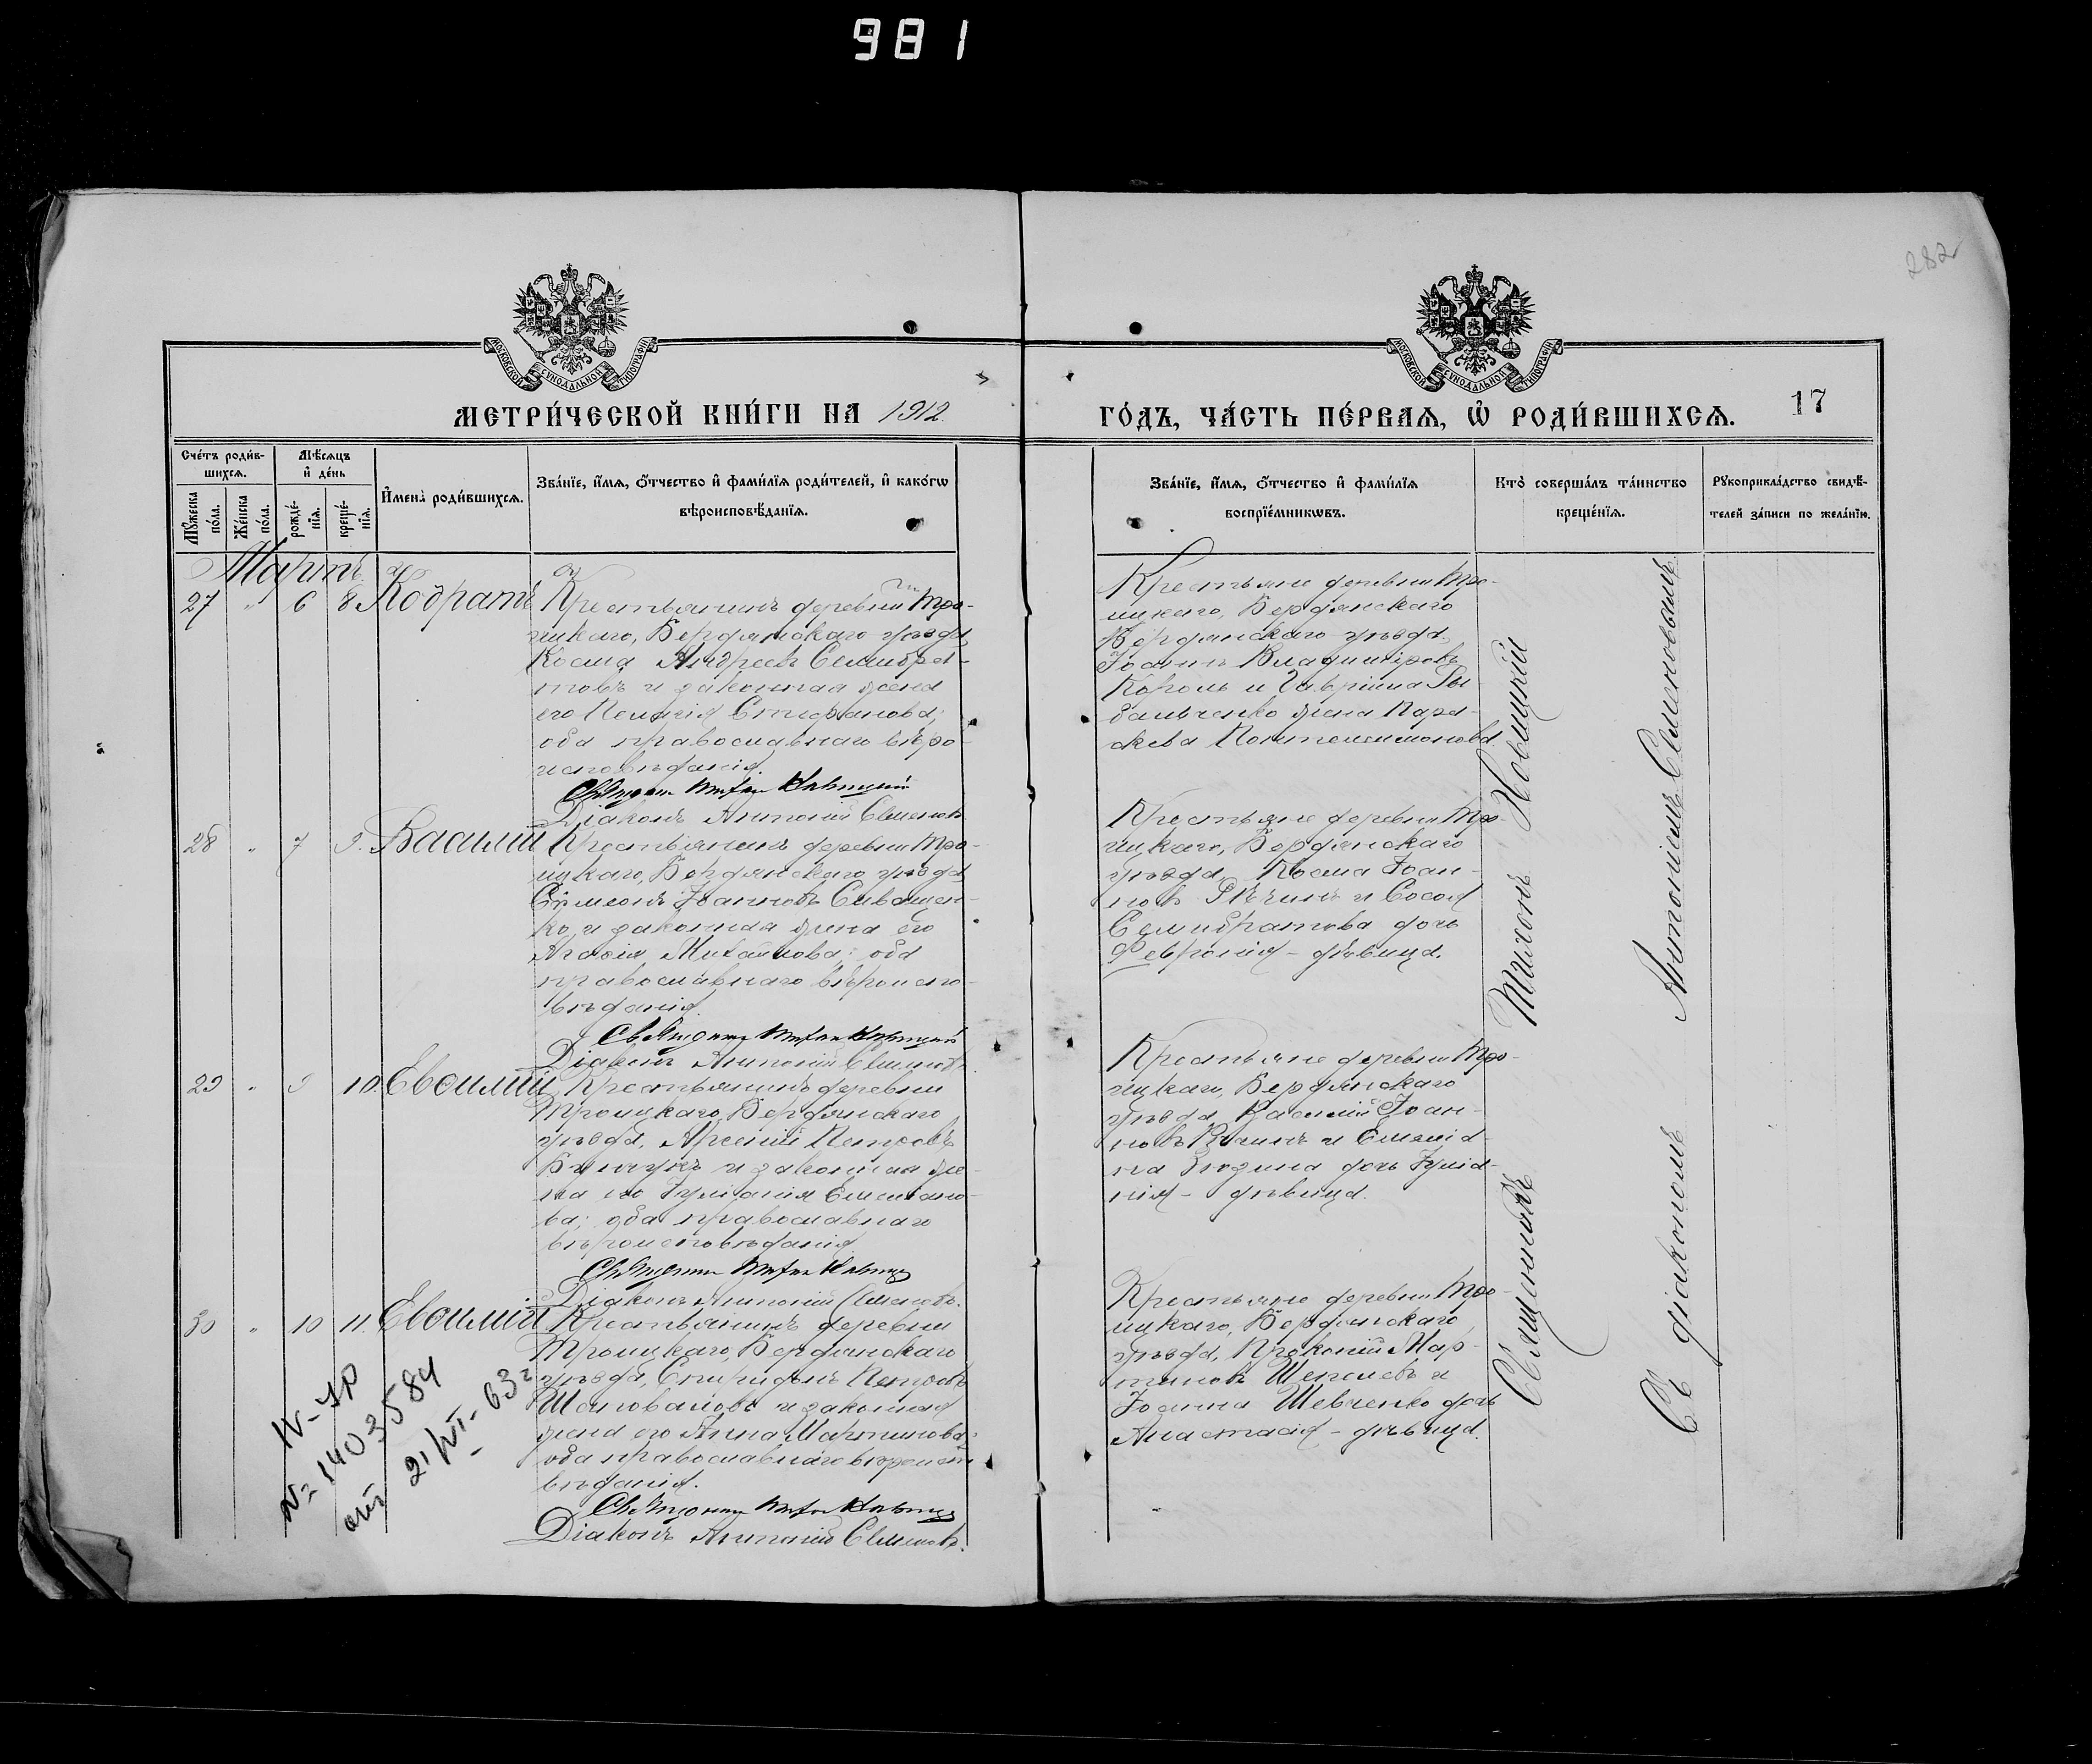 981
282
МОСКОВСКОЙ СѴНОДАЛЬНОЙ ТИПОГРАФІИ
МОСКОВСКОЙ СѴНОДАЛЬНОЙ ТИПОГРАФІИ
МЕТРИ́ЧЕСКОЙ КНИ́ГИ НА 1912
ГО́ДЪ, ЧА́СТЬ ПЕ́РВАЯ, Ѡ҆ РОДИ́ВШИХСЯ.
17
Сче́тъ роди́в-
шихся.
Мѣ́сяцъ
и҆ де́нь
Мꙋ́жеска
по́ла.
Же́нска
по́ла.
рожде́-
нїѧ.
креще́-
нїѧ.
И҆мена̀ роди́вшихся.
Зва́нїе, и҆́мя, ѻ҆́тчество и҆ фами́лїя роди́телей, и҆ како́гѡ
вѣроисповѣ́данїя.
Зва́нїе, и҆́мя, ѻ҆́тчество и҆ фами́лїя
воспрїе́мникѡвъ.
Кто̀ соверша́лъ та́инство
креще́нїя.
Рꙋкоприкла́дство свидѣ́-
телей за́писи по жела́нїю.
Мартъ.
27 " 6 8 Кодратъ
Крестьянинъ деревни Тро-
ицкаго, Бердянскаго уѣзда,
Косма Андреевъ Семибра-
товъ и законная жена
его Пелагія Стефанова;
оба православнаго вѣро-
исповѣданія.
Священникъ Тихонъ Новицкій
Діаконъ Антоній Семеновъ
Крестьяне деревни Тро-
ицкаго, Бердянскаго
Бердянскаго уѣзда,
Іоаннъ Владиміровъ
Король и Гавріила Ры-
бальченко жена Пара-
скева Пантелеимонова.
28 " 7 9. Василій
Крестьянинъ деревни Тро-
ицкаго, Бердянскаго уѣзда,
Сѵмеонъ Іоанновъ Сиващен-
ко и законная жена его
Агафія Михайлова; оба
православнаго вѣроиспо-
вѣданія.
Священникъ Тихонъ Новицкій
Діаконъ Антоній Семеновъ
Крестьяне деревни Тро-
ицкаго, Бердянскаго
уѣзда, Косма Іоан-
новъ и
Семибратова дочь
Февронія - дѣвица.
29 " 9 10 Евѳимій
Крестьянинъ деревни
Троицкаго, Бердянскаго
уѣзда, Арсеній Петровъ
и законная же-
на его Іуліанія Емеліано-
ва; оба православнаго
вѣроисповѣданія.
Священникъ Тихонъ Новицкій
Діаконъ Антоній Семеновъ.
Крестьяне деревни Тро-
ицкаго, Бердянскаго
уѣзда, Василій Іоан-
новъ и Емеліа-
на дочь Іуліа-
нія - дѣвица.
30 " 10 11. Евѳимій
Крестьянинъ деревни
Троицкаго, Бердянскаго
уѣзда, Спиридонъ Петровъ
Шаповаловъ и законная
жена его Анна Мартинова;
оба православнаго вѣроиспо-
вѣданія.
Священникъ Тихонъ Новицкій
Діаконъ Антоній Семеновъ.
Крестьяне деревни Тро-
ицкаго, Бердянскаго
уѣзда, Прокопій Мар-
тиновъ и
Іоанна Шевченко дочь
Анастасія - дѣвица.
Священникъ Тихонъ Новицкій
Съ діакономъ Антоніемъ Семеновымъ.
№ 1403584
от 21/VI-63 г